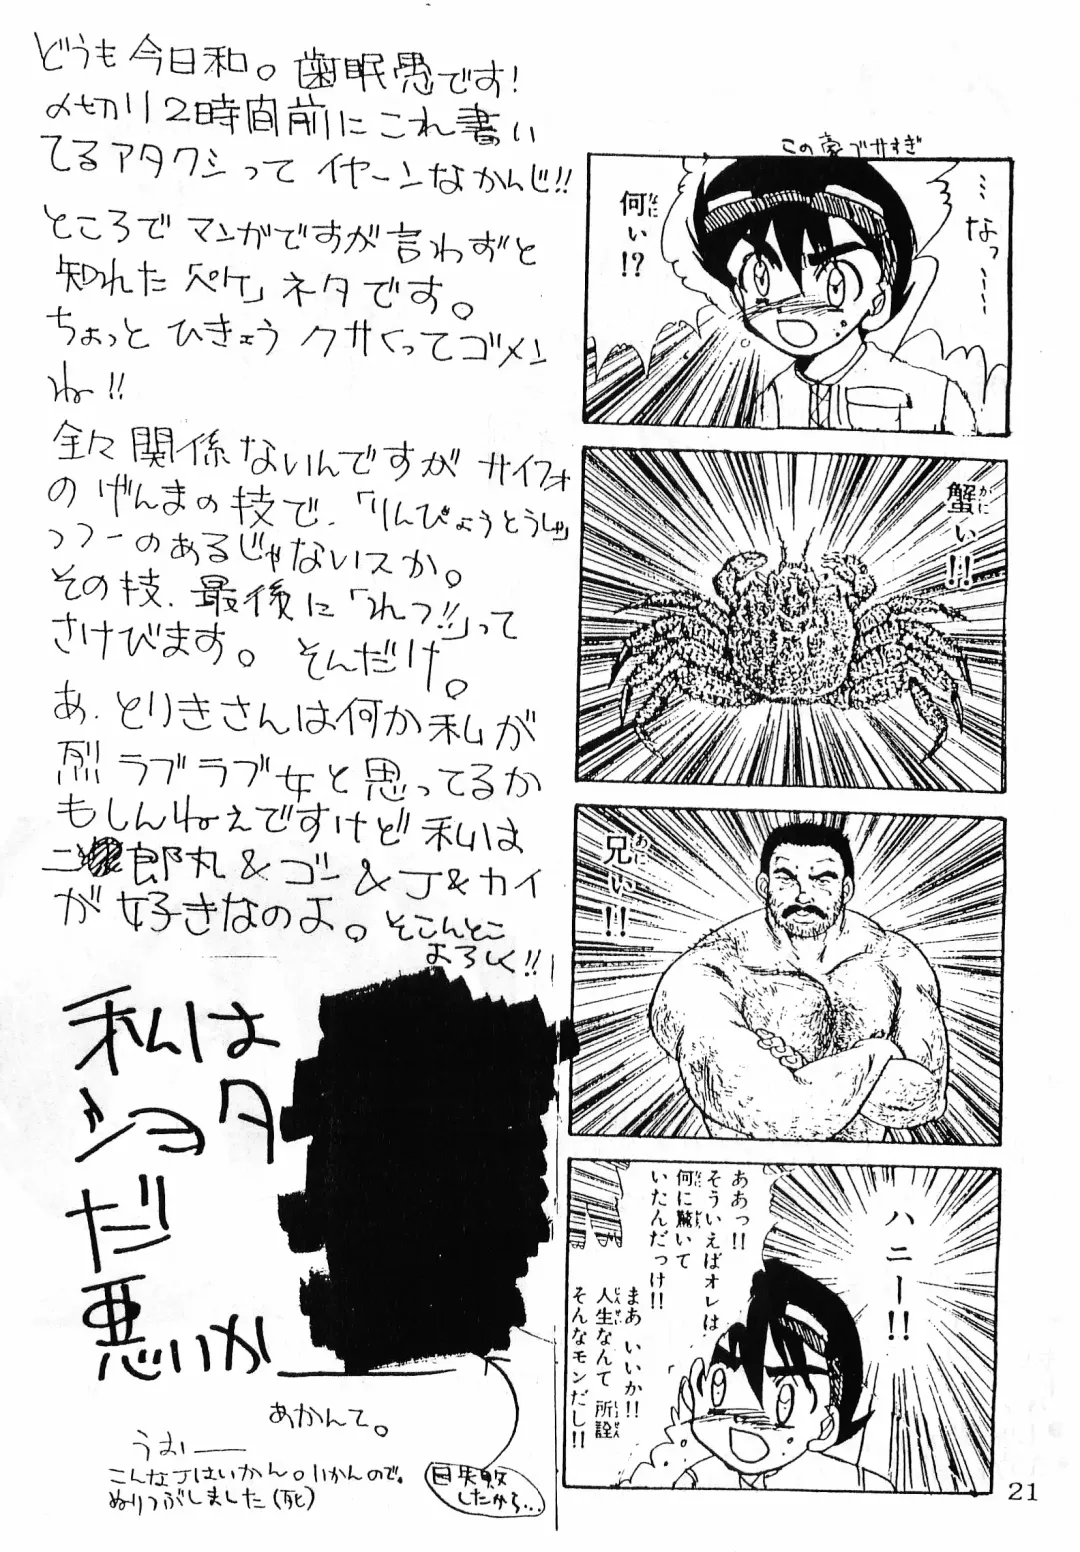 どうも今日和。歯眠愚です!
〆切り2時間前にこれ書い
てるアタクシってイヤーンなかんじ!!
ところでマンガですが言わずと
知れた「ペケ」ネタです。
ちょっとひきょうクサくってゴメン
ね!!
全々関係ないんですがサイフォ
のげんまの技で、「りんぴょうとうしゃ」
っつーのあるじゃないスか。
その技、最後に「れつ!!」って
さけびます。そんだけ。
あ、とりきさんは何か私が
烈ラブラブ女と思ってるか
もしんねぇですけど私は
二郎丸&ゴン&J&カイ
が好きなのよ。そこんとこ
よろしく!!
私は
ショタ
だ
悪いか
あかんて。
うおー
こんなJはいかん。いかんので。
ぬりつぶしました(死)
目失敗
したから…
この豪ブサすぎ
…なっ……
何ぃ!?
なに
蟹ぃ!!
かに
兄ぃ!!
あに
ハニー!!
ああっ!!
そういえばオレは
何に驚いて
なに おどろ
いたんだっけ!!
まあ いいか!!
人生なんて 所詮
じんせい しょせん
そんなモンだし!!
21